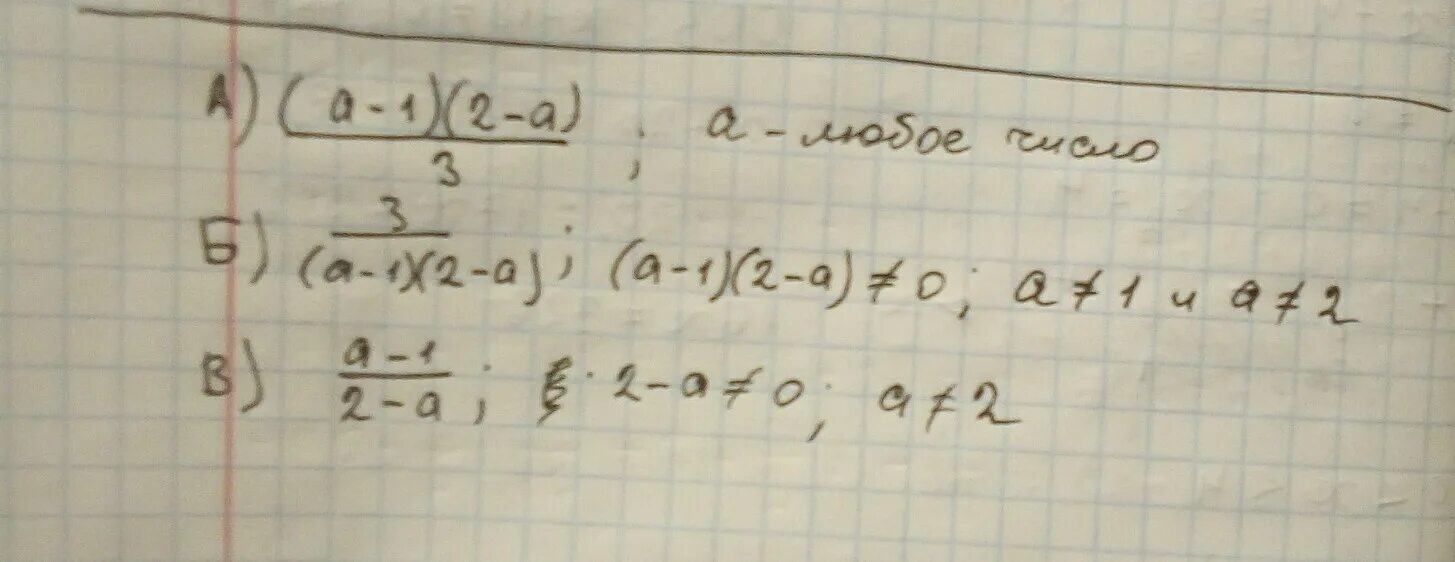 А) (a-1)(2-a)/3 ; a - любое число
Б) 3/(a-1)(2-a) ; (a-1)(2-a) ≠ 0 ; a ≠ 1 и a ≠ 2
В) a-1/2-a ; 2-a ≠ 0 ; a ≠ 2